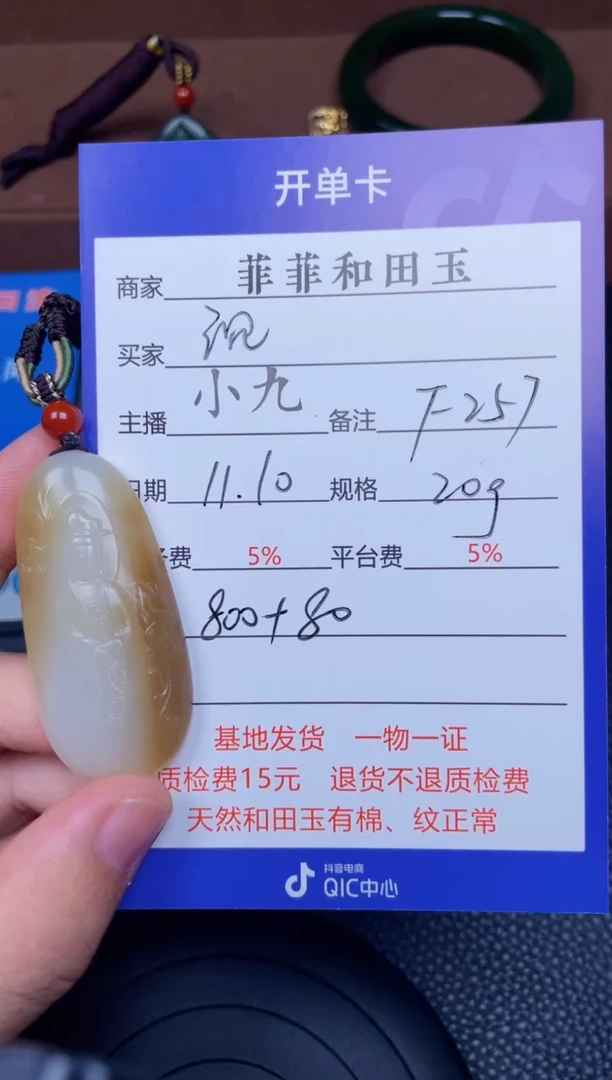 开单卡
商家 菲菲和田玉
买家
主播 小九 备注 T-257
日期 11.10 规格 20g
费 5% 平台费 5%
800+80
基地发货 一物一证
质检费15元 退货不退质检费
天然和田玉有棉、纹正常
抖音电商
QIC中心